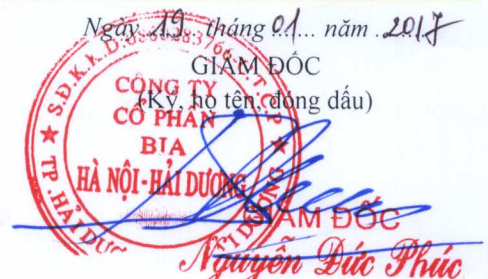 Ngày 19 tháng 01 năm 2017
GIÁM ĐỐC
(Ký, họ tên, đóng dấu)
CÔNG TY
CỔ PHẦN
BIA
HÀ NỘI-HẢI DƯƠNG
GIÁM ĐỐC
Nguyễn Đức Phúc